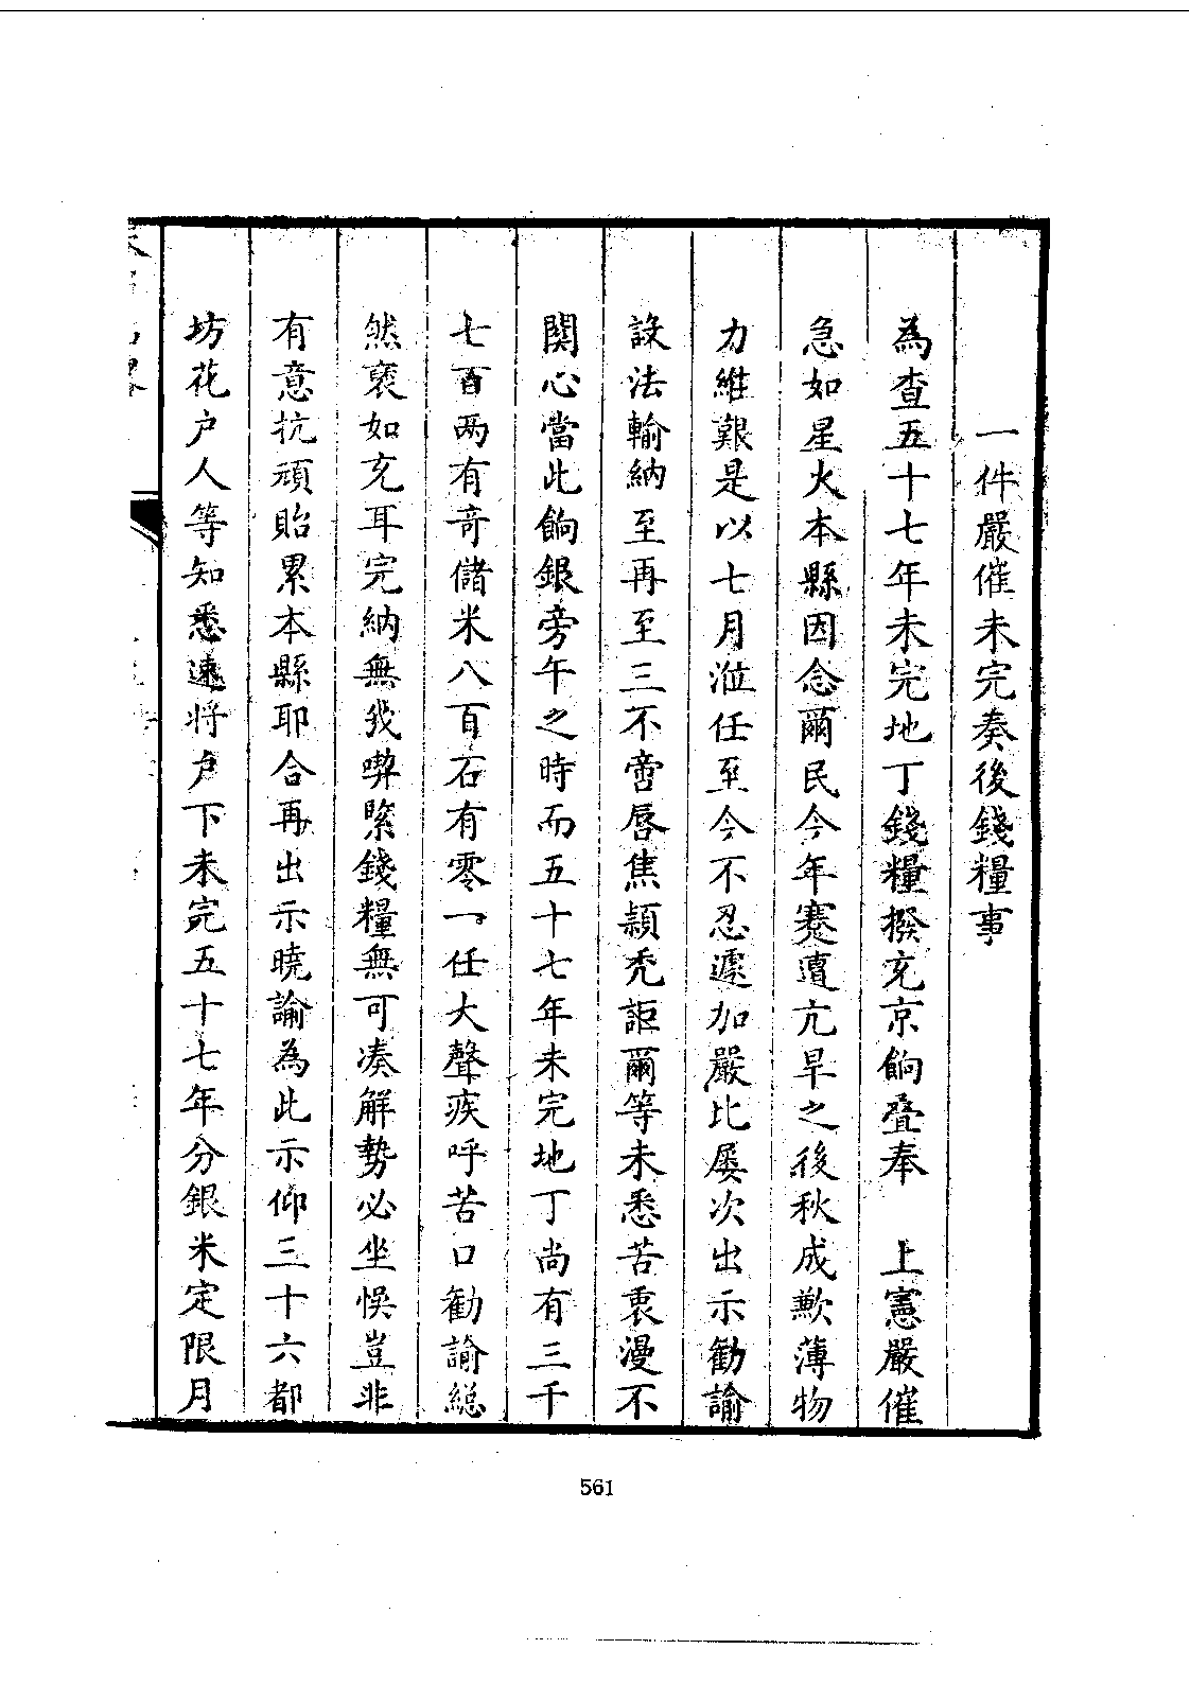 一件嚴催未完奏後錢糧事
為查五十七年未完地丁錢糧撥充京餉疊奉　上憲嚴催
急如星火本縣因念爾民今年蹇遭亢旱之後秋成歉薄物
力維艱是以七月涖任至今不忍遽加嚴比屡次出示勸諭
設法輸納至再至三不啻唇焦頴秃詎爾等未悉苦衷漫不
関心當此餉銀旁午之時而五十七年未完地丁尚有三千
七百两有奇儲米八百石有零一任大聲疾呼苦口勸諭総
然裒如充耳完納無我㗫緊錢糧無可凑解勢必坐悞豈非
有意抗頑貽累本縣耶合再出示曉諭為此示仰三十六都
坊花户人等知悉速将户下未完五十七年分銀米定限月
561